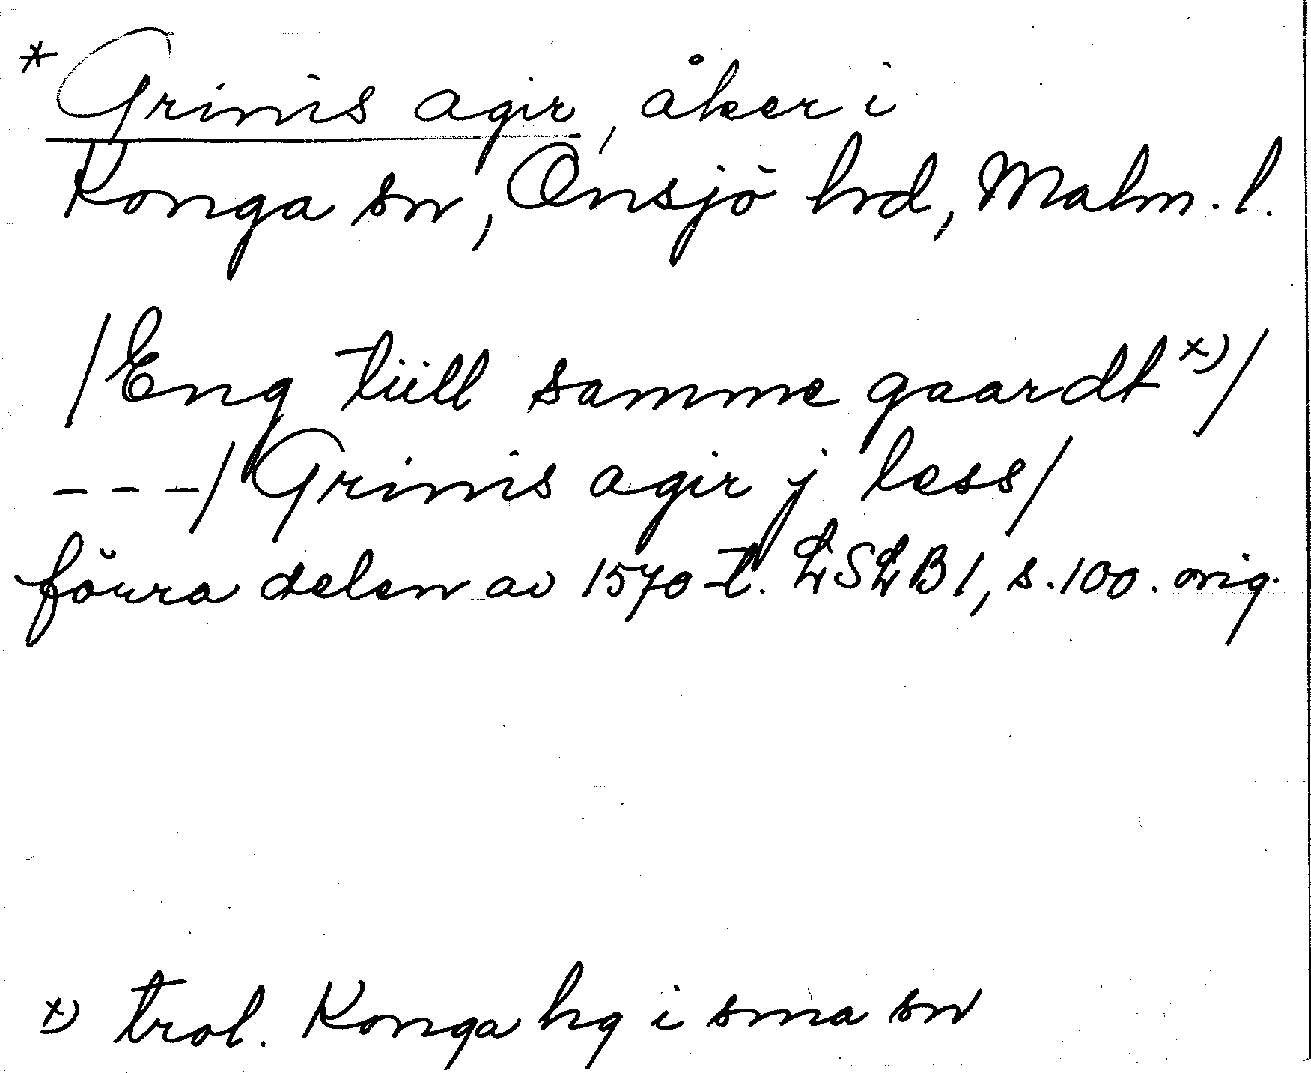 * Grimis agir, åker i
Konga sn, Onsjö hrd, Malm. l.
/Eng tiill samme gaardt x)/
---/Grimis agir j less/
förra delen av 1570-t. LSLB 1, s. 100. orig.
x) trol. Konga hg i sma sn